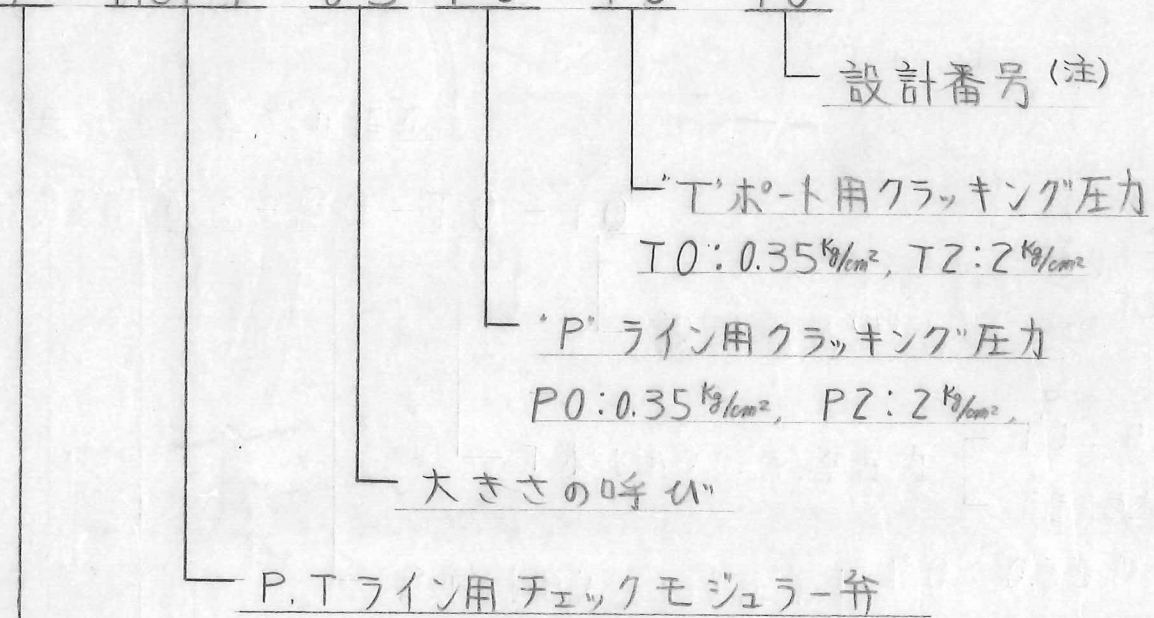 設計番号(注)
"T"ポート用クラッキング圧力
T0:0.35Kg/cm², T2:2Kg/cm²
"P"ライン用クラッキング圧力
P0:0.35Kg/cm², P2:2Kg/cm²,
大きさの呼び
P.Tライン用チェックモジュラー弁